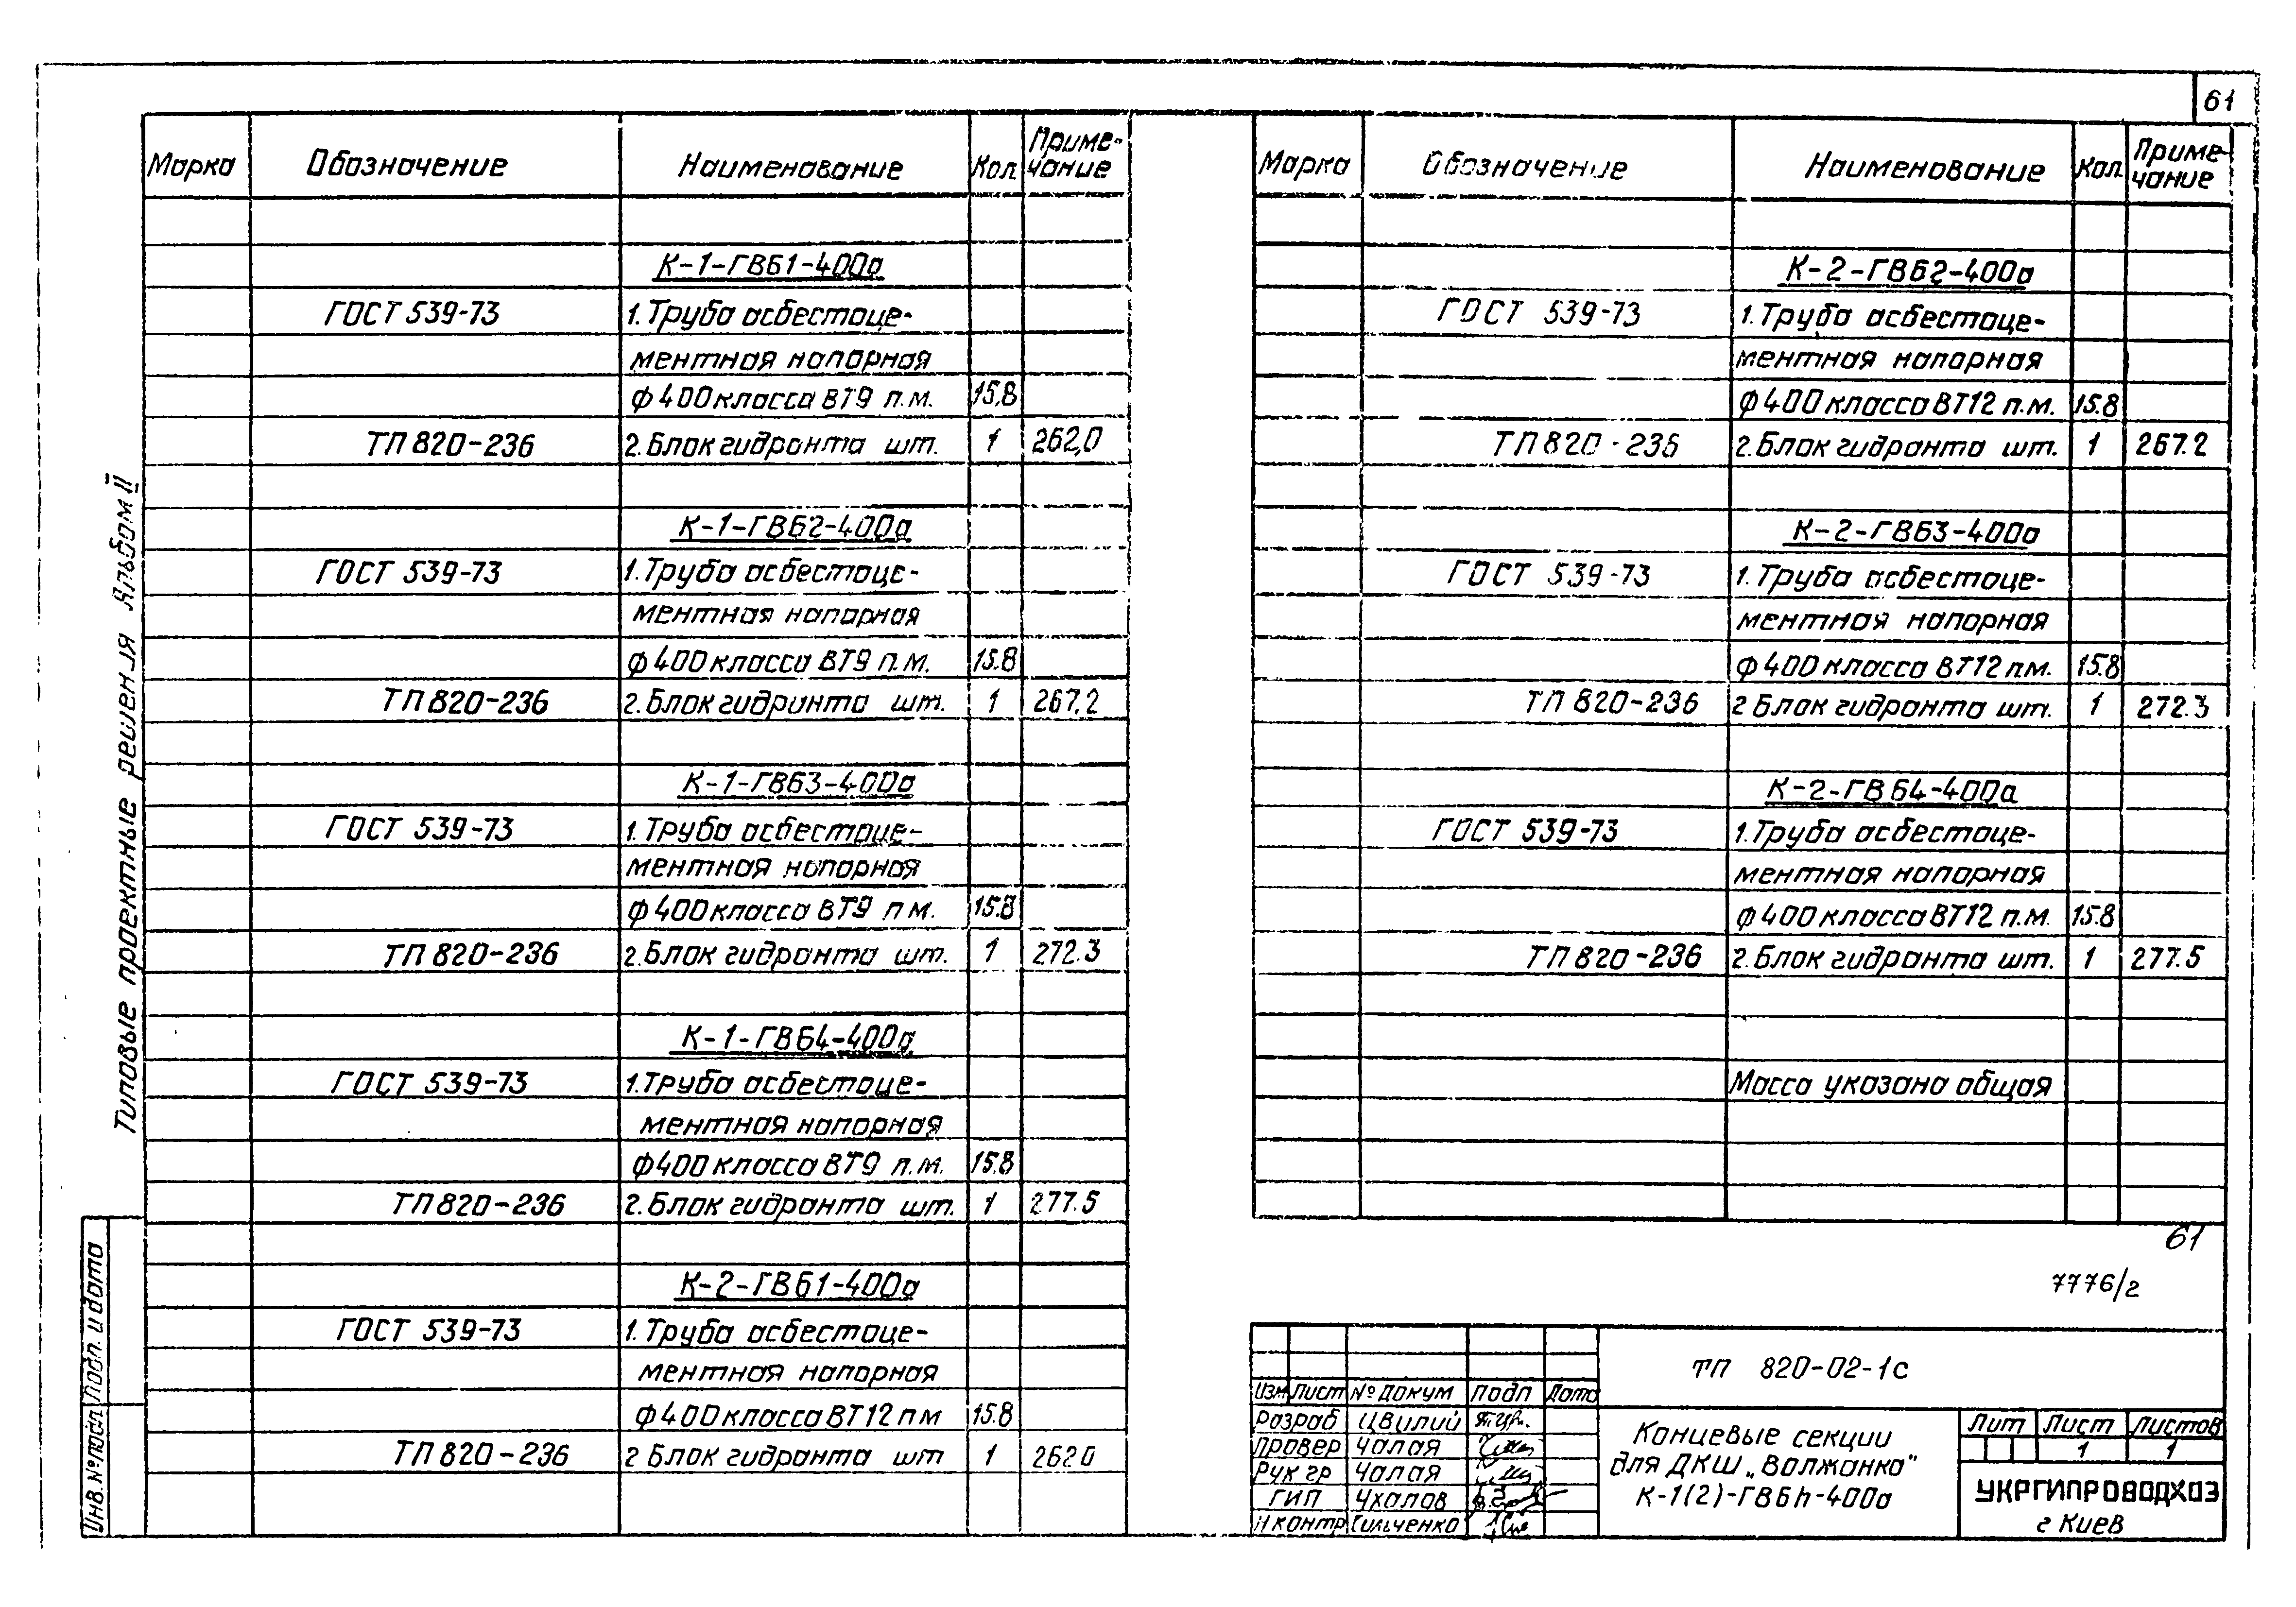 61
Марка Обозначение Наименование Кол. Приме-
чание
К-1-ГВБ1-400а
ГОСТ 539-73 1. Труба асбестоце-
ментная напорная
ф400 класса ВТ9 п.м. 15.8
ТП 820-236 2. Блок гидранта шт. 1 262,0
К-1-ГВБ2-400а
ГОСТ 539-73 1. Труба асбестоце-
ментная напорная
ф400 класса ВТ9 п.м. 15.8
ТП 820-236 2. Блок гидранта шт. 1 267.2
К-1-ГВБ3-400а
ГОСТ 539-73 1. Труба асбестоце-
ментная напорная
ф400 класса ВТ9 п м. 15.8
ТП 820-236 2. Блок гидранта шт. 1 272.3
К-1-ГВБ4-400а
ГОСТ 539-73 1. Труба асбестоце-
ментная напорная
ф400 класса ВТ9 п.м. 15.8
ТП 820-236 2. Блок гидранта шт. 1 277.5
К-2-ГВБ1-400а
ГОСТ 539-73 1. Труба асбестоце-
ментная напорная
ф400 класса ВТ12 п м 15.8
ТП 820-236 2 Блок гидранта шт 1 262 0
Марка Обозначение Наименование Кол. Приме-
чание
К-2-ГВБ2-400а
ГОСТ 539-73 1. Труба асбестоце-
ментная напорная
ф400 класса ВТ12 п.м. 15.8
ТП 820-236 2. Блок гидранта шт. 1 267.2
К-2-ГВБ3-400а
ГОСТ 539-73 1. Труба асбестоце-
ментная напорная
ф400 класса ВТ12 пм. 15.8
ТП 820-236 2 Блок гидранта шт. 1 272.3
К-2-ГВБ4-400а
ГОСТ 539-73 1. Труба асбестоце-
ментная напорная
ф400 класса ВТ12 п.м. 15.8
ТП 820-236 2. Блок гидранта шт. 1 277.5
Масса указана общая
61
7776/2
ТП 820-02-1с
Изм Лист № докум Подп Дата
Разраб Цвилий
Провер Чалая
Рук гр Чалая
ГИП Чхалов
Н контр Сильченко
Концевые секции
для ДКШ „Волжанка"
К-1(2)-ГВБh-400а
Лит Лист Листов
1 1
УКРГИПРОВОДХОЗ
г Киев
Типовые проектные решения Альбом II
Инв. № подл Подп. и дата